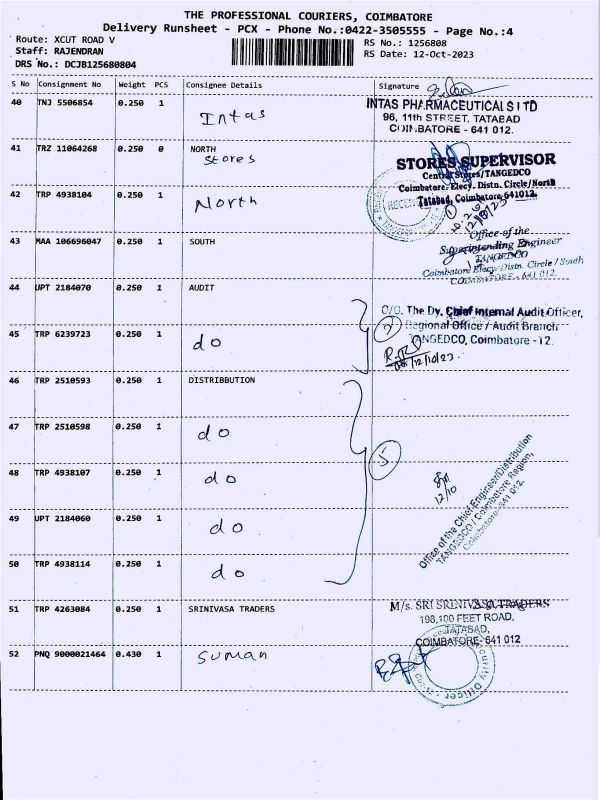 THE PROFESSIONAL COURIERS, COIMBATORE
Delivery Runsheet - PCX - Phone No.:0422-3505555 - Page No.:4
Route: XCUT ROAD V
RS No.: 1256808
Staff: RAJENDRAN
RS Date: 12-Oct-2023
DRS No.: DCJB125680804
S No Consignment No Weight PCS Consignee Details Signature
40 TNJ 5506854 0.250 1 Intas
INTAS PHARMACEUTICALS LTD
96, 11th STREET, TATABAD
COIMBATORE - 641 012.
41 TRZ 11064268 0.250 0 NORTH
Stores
STORES SUPERVISOR
Central Stores/TANGEDCO
Coimbatore. Elecy. Distn. Circle/North
Tatabad, Coimbatore-641012.
42 TRP 4938104 0.250 1 North
43 MAA 106696047 0.250 1 SOUTH
Office of the
Superintending Engineer
TANGEDCO
Coimbatore Elecy Distn. Circle / South
COIMBATORE - 641 012.
44 UPT 2184070 0.250 1 AUDIT
O/O. The Dy. Chief Internal Audit Officer,
Regional Office / Audit Branch
TANGEDCO, Coimbatore - 12.
45 TRP 6239723 0.250 1 do
2
12/10/23
46 TRP 2510593 0.250 1 DISTRIBBUTION
47 TRP 2510598 0.250 1 do
5
48 TRP 4938107 0.250 1 do
12/10
Office of the Chief Engineer/Distribution
TANGEDCO / Coimbatore Region,
Coimbatore-641 012.
49 UPT 2184060 0.250 1 do
50 TRP 4938114 0.250 1 do
51 TRP 4263084 0.250 1 SRINIVASA TRADERS
M/s. SRI SRINIVASA TRADERS
198,100 FEET ROAD,
TATABAD,
COIMBATORE- 641 012
52 PNQ 9000021464 0.430 1 Suman